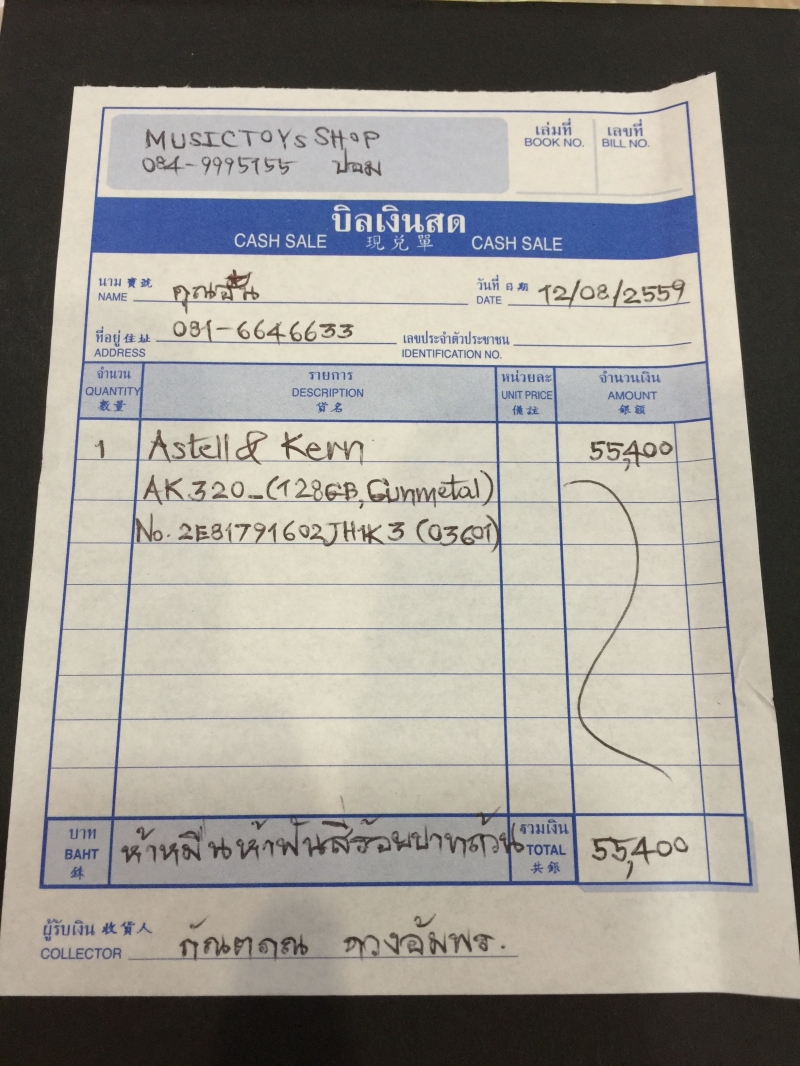 MUSICTOYS SHOP
084-9995155 ปอม
เล่มที่ เลขที่
BOOK NO. BILL NO.
บิลเงินสด
CASH SALE 現兌單 CASH SALE
นาม 寶號 วันที่ 日期
NAME คุณ DATE 12/08/2559
ที่อยู่ 住址 081-6646633 เลขประจำตัวประชาชน
ADDRESS IDENTIFICATION NO.
จำนวน รายการ หน่วยละ จำนวนเงิน
QUANTITY DESCRIPTION UNIT PRICE AMOUNT
數量 貨名 備註 銀額
1 Astell & Kern 55,400
AK320-(128GB,Gunmetal)
No.2E81791602JH1K3 (03601)
บาท ห้าหมื่นห้าพันสี่ร้อยบาทถ้วน รวมเงิน
BAHT TOTAL 55,400
銖 共銀
ผู้รับเงิน 收貨人
COLLECTOR กัณตภณ ดวงอัมพร.